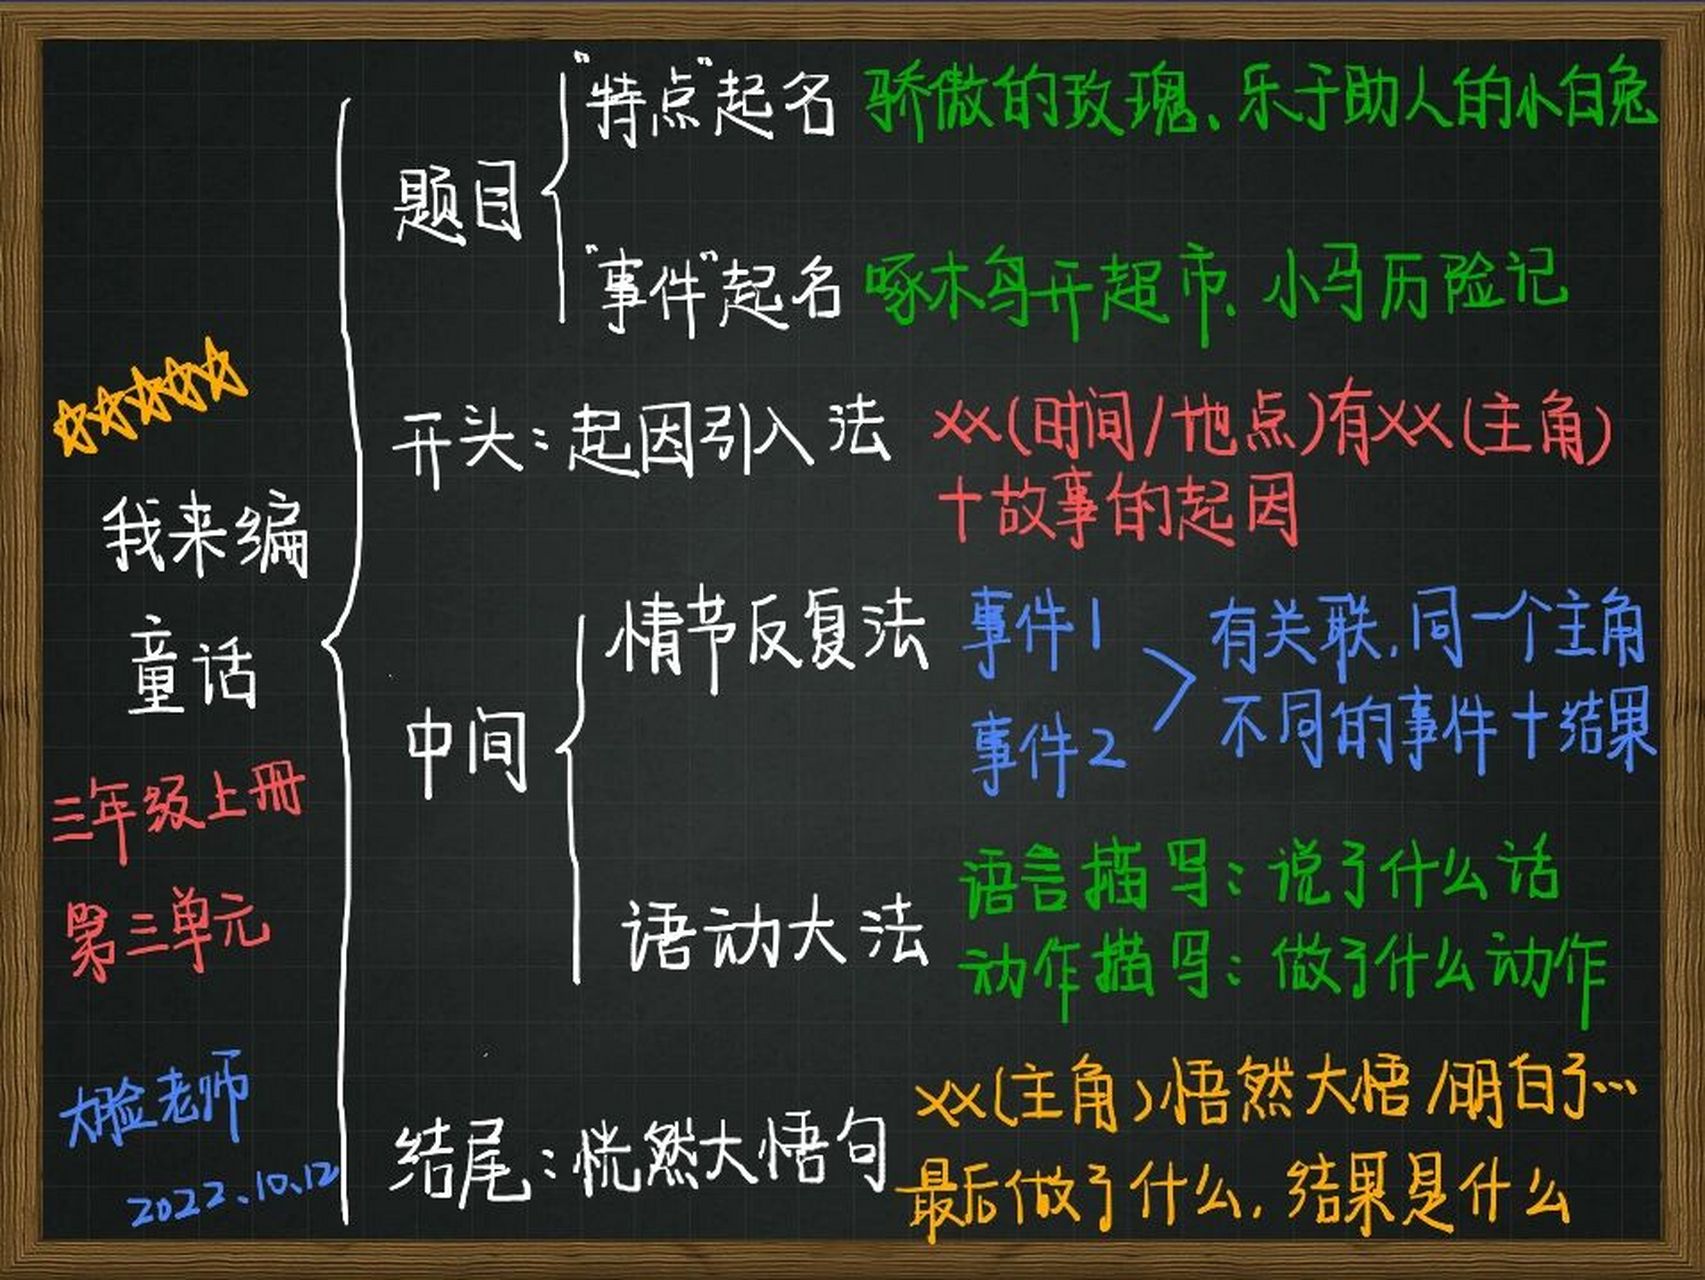 "特点"起名 骄傲的玫瑰、乐于助人的小白兔
题目
"事件"起名 啄木鸟开超市、小马历险记
开头：起因引入法 XX(时间/地点)有XX(主角)
+故事的起因
我来编
童话
三年级上册
第三单元
大脸老师
2022.10.12
中间
情节反复法 事件1 有关联,同一个主角
事件2 不同的事件+结果
语动大法 语言描写：说了什么话
动作描写：做了什么动作
结尾：恍然大悟句 XX(主角)悟然大悟/明白了…
最后做了什么,结果是什么